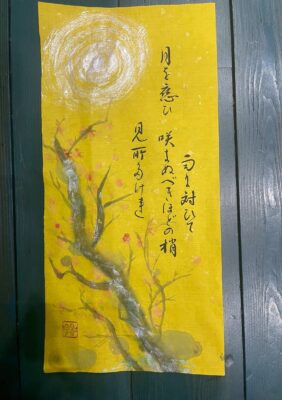 雨に対ひて
月を恋ひ 咲きぬべきほどの梢
見所多けれ